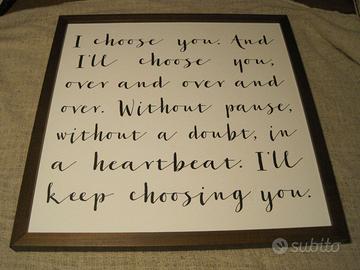 I choose you. And
I'll choose you,
over and over and
over. Without pause,
without a doubt, in
a heartbeat. I'll
keep choosing you.
subito